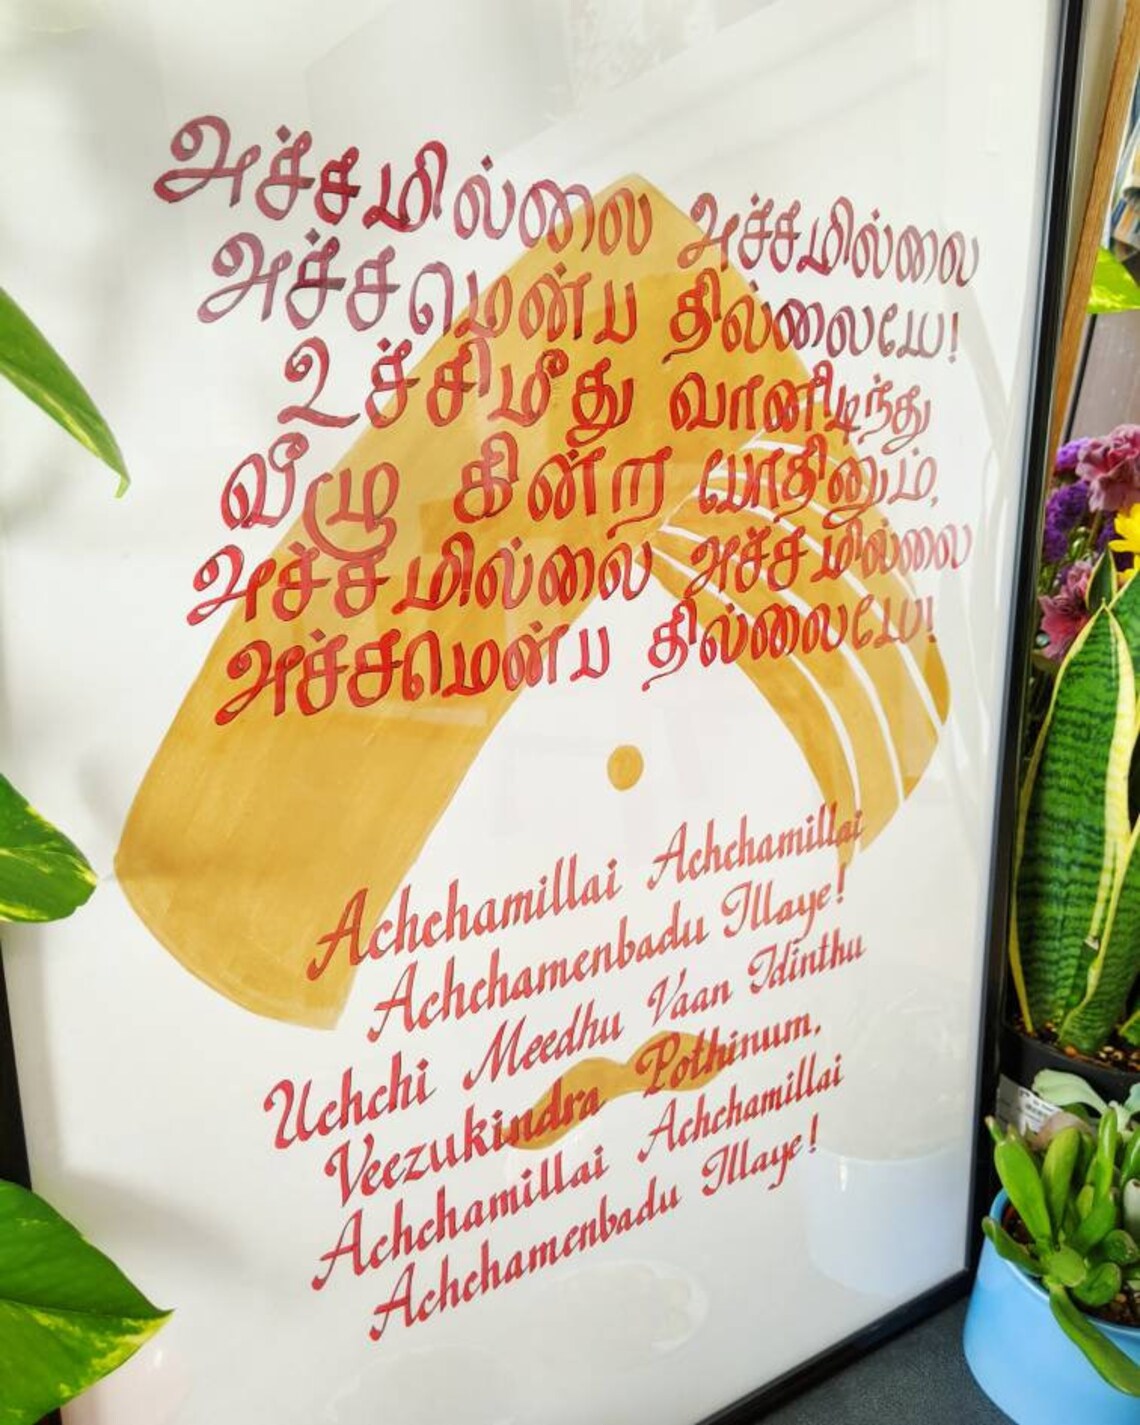 அச்சமில்லை அச்சமில்லை
அச்சமென்ப தில்லையே!
உச்சிமீது வானிடிந்து
வீழு கின்ற போதினும்,
அச்சமில்லை அச்சமில்லை
அச்சமென்ப தில்லையே!
Achchamillai Achchamillai
Achchamenbadu Illaye!
Uchchi Meedhu Vaan Idinthu
Veezukindra Pothinum,
Achchamillai Achchamillai
Achchamenbadu Illaye!